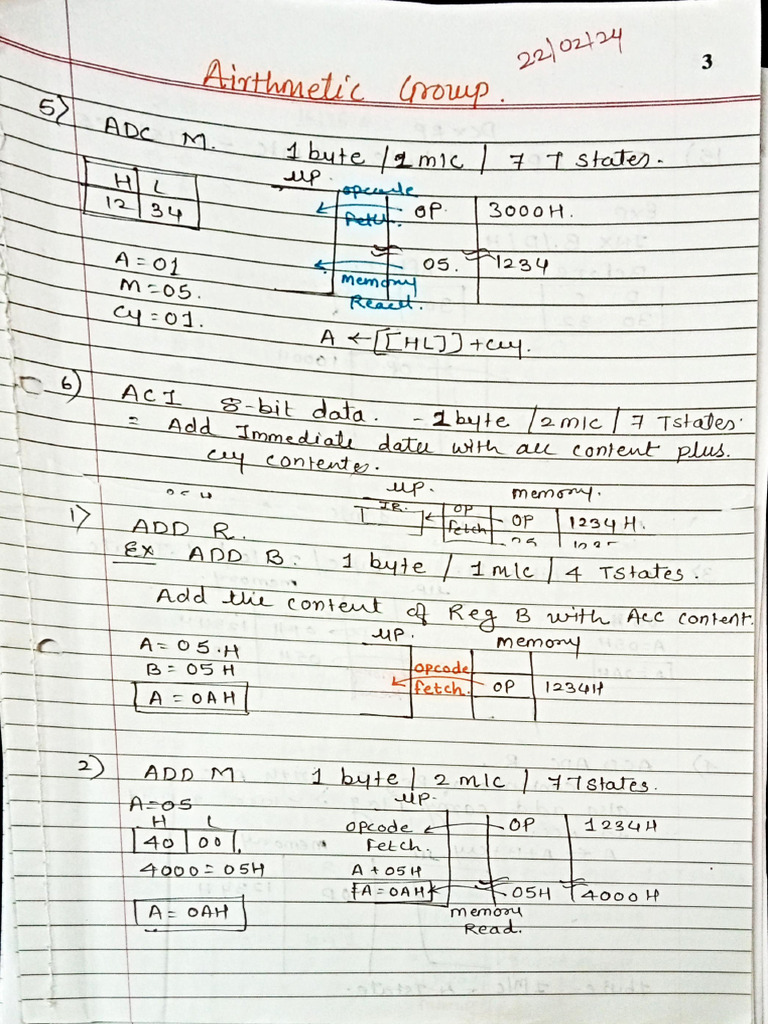 22/02/24
3
Airthmetic Group.
5) ADC M. 1 byte / 2 m/c / 7 T states.
H L
12 34
μP.
opcode
fetch
OP 3000H.
A = 01
M = 05.
Cy = 01.
05. 1234
memory
Read.
A ← [[HL]] + cy.
6) ACI 8-bit data. - 2 byte / 2 m/c / 7 Tstates.
= Add Immediate data with acc content plus.
cy contents.
μP. memory.
IR.
OP
fetch
OP 1234H.
1) ADD R.
Ex ADD B. 1 byte / 1 m/c / 4 Tstates.
Add the content of Reg B with Acc content.
μP. memory
A = 05.H
B = 05H
A = 0AH
opcode
fetch.
OP 1234H
2) ADD M 1 byte / 2 m/c / 7 Tstates.
μP.
A = 05
H L
40 00
4000 = 05H
A = 0AH
opcode
Fetch.
OP 1234H
A + 05H
[A = 0AH]
05H 4000H
memory
Read.